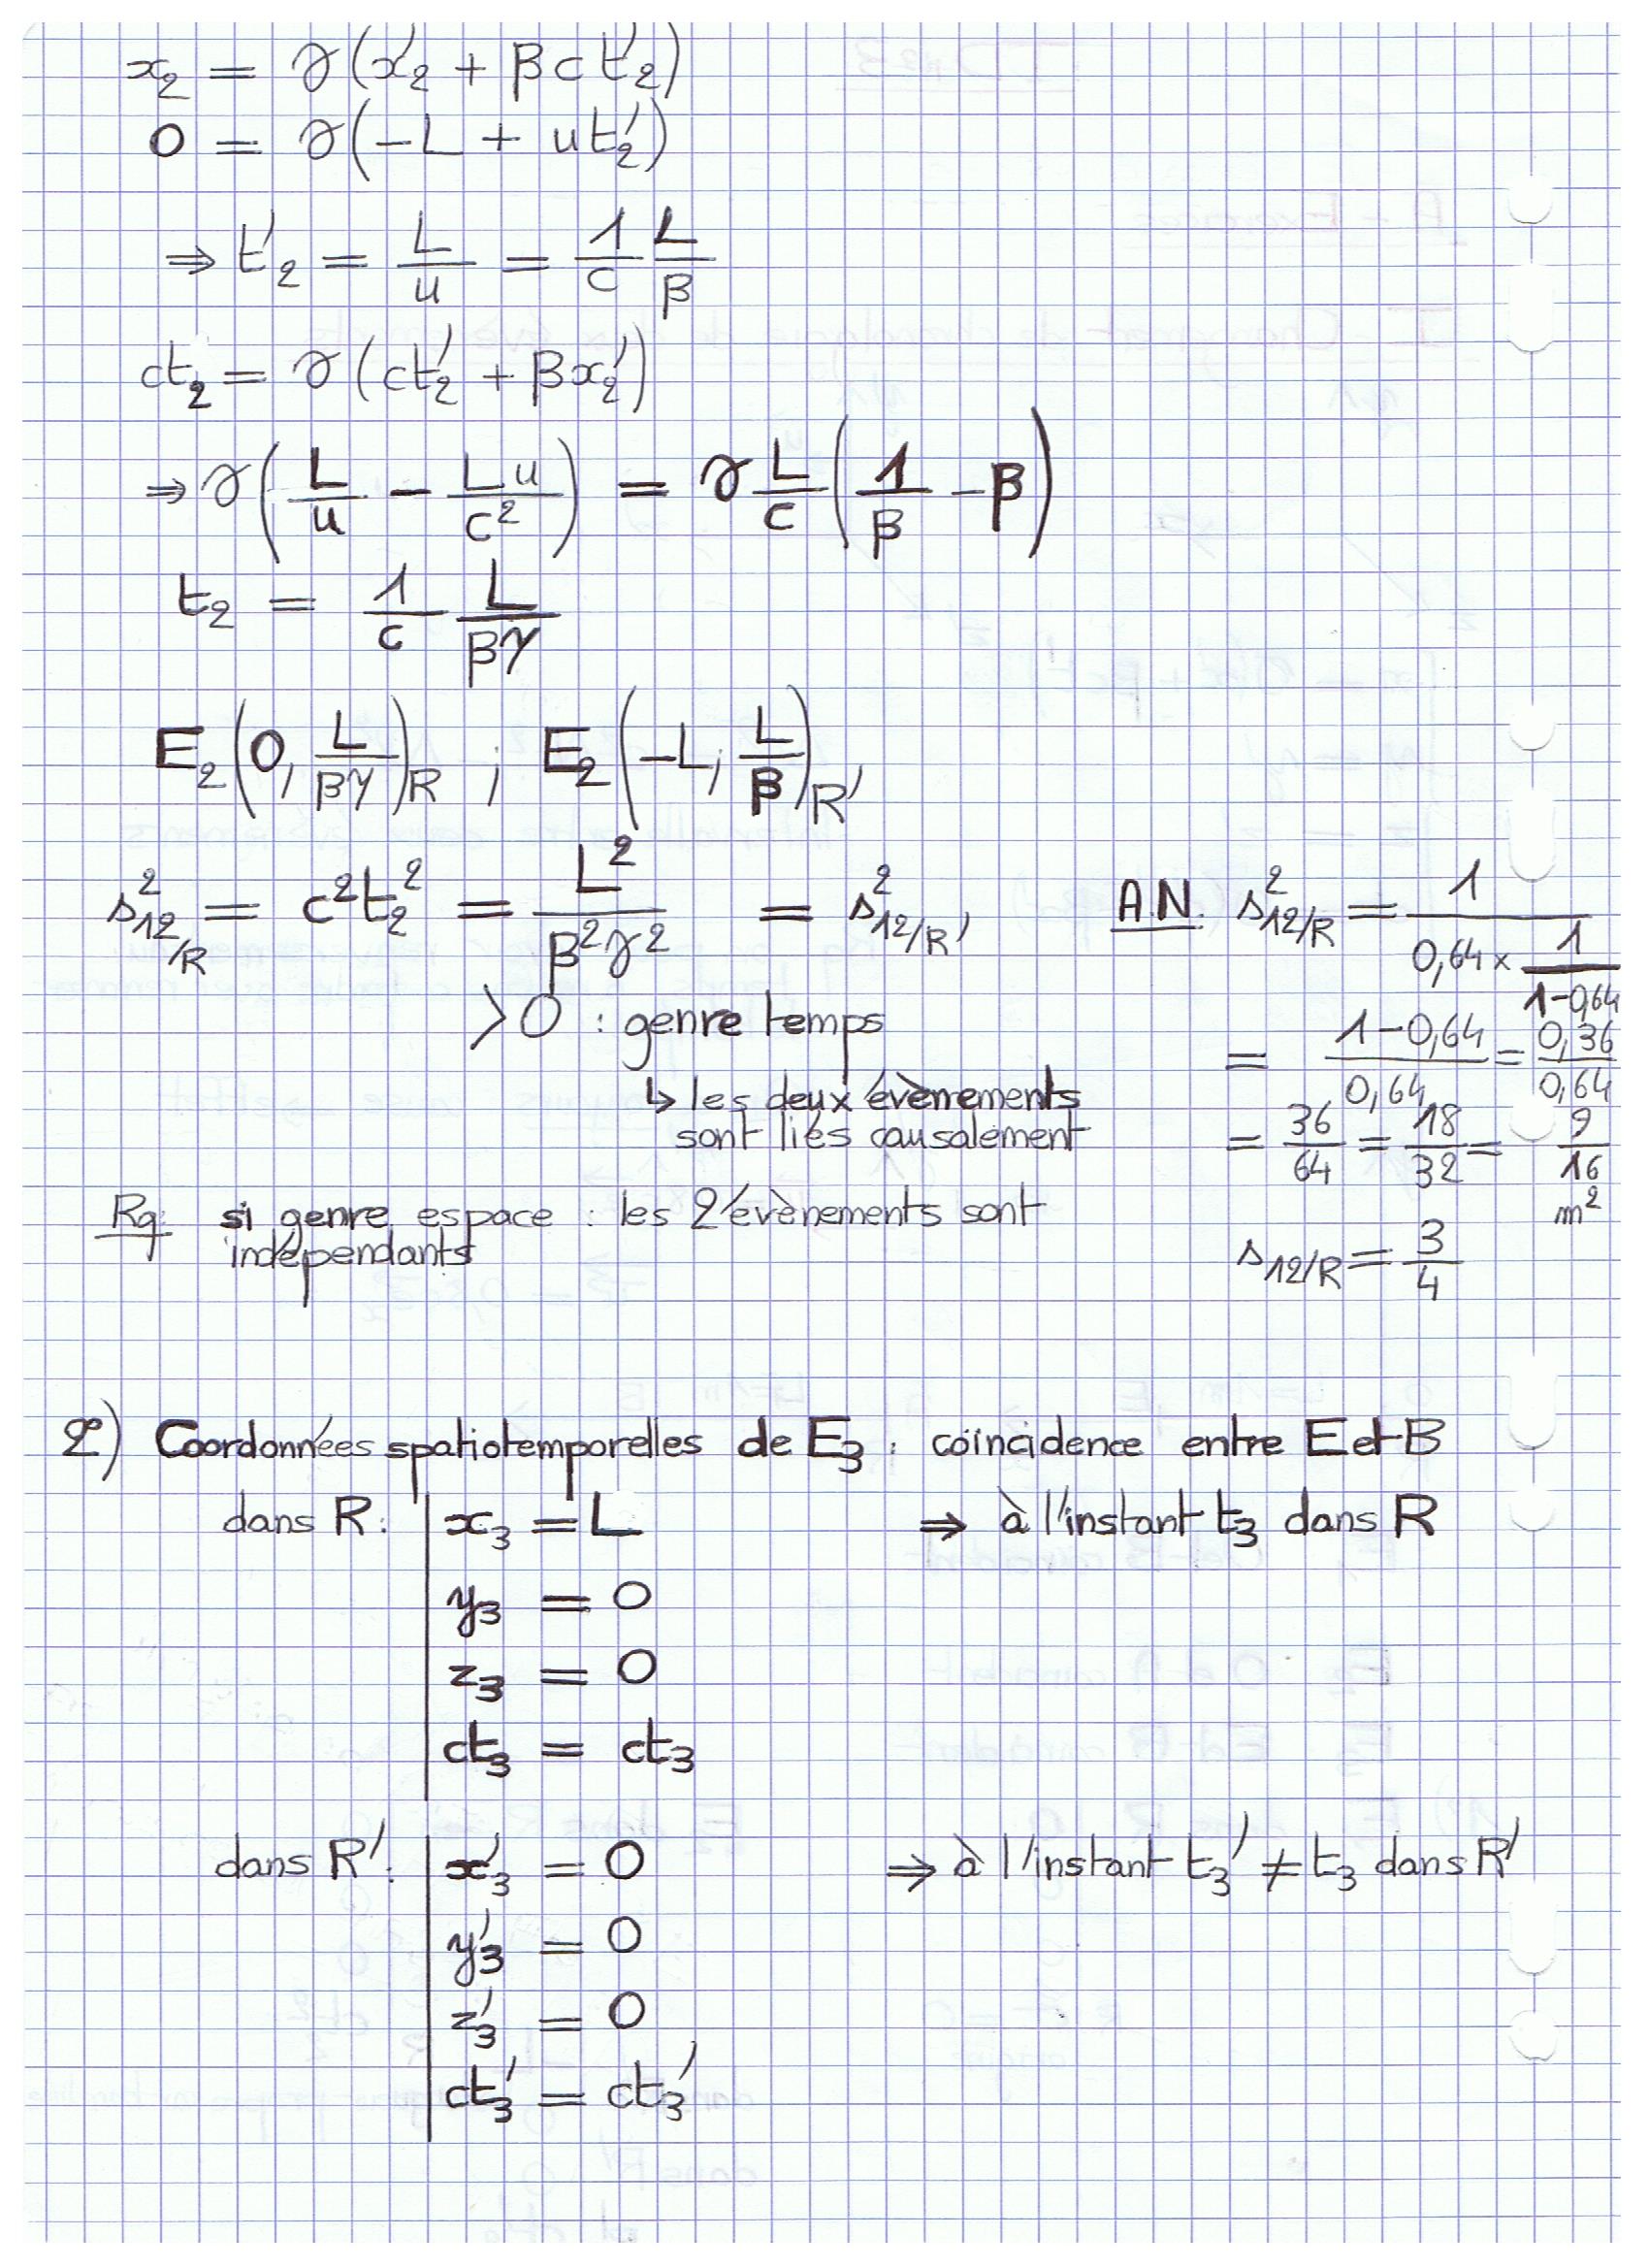 x₂ = γ(x'₂ + βct'₂)
0 = γ(-L + ut'₂)
⇒ t'₂ = L/u = 1/c L/β
ct₂ = γ(ct'₂ + βx'₂)
⇒ γ(L/u - Lu/c²) = γ L/c (1/β - β)
t₂ = 1/c L/βγ
E₂(0, L/βγ)R ; E₂(-L; L/β)R'
s²₁₂/R = c²t₂² = L²/β²γ² = s²₁₂/R'
>0 : genre temps
↳ les deux évènements
sont liés causalement
A.N. s²₁₂/R = 1/(0,64 × 1/(1-0,64))
= (1-0,64)/0,64 = 0,36/0,64
= 36/64 = 18/32 = 9/16 m²
s₁₂/R = 3/4
Rq: si genre espace : les 2 évènements sont
indépendants
2) Coordonnées spatiotemporelles de E₃ : coïncidence entre E et B
dans R: x₃ = L ⇒ à l'instant t₃ dans R
y₃ = 0
z₃ = 0
ct₃ = ct₃
dans R': x'₃ = 0 ⇒ à l'instant t₃' ≠ t₃ dans R'
y'₃ = 0
z'₃ = 0
ct₃' = ct₃'